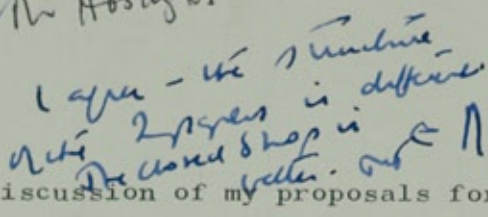 I agree - the structure
of the 2 papers is different.
The closed shop is
better. MT
iscussion of my proposals for